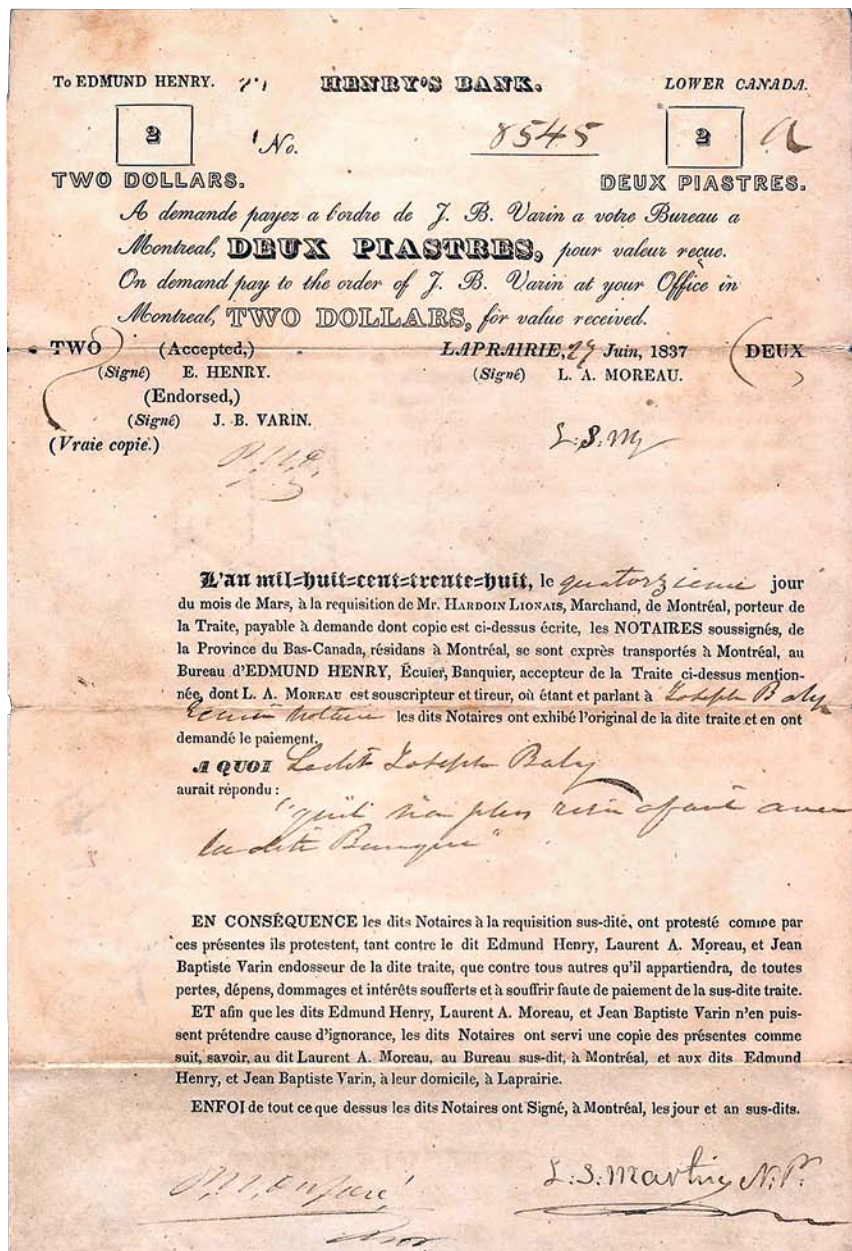 To EDMUND HENRY. HENRY'S BANK. LOWER CANADA.
2 No. 8545 2 a
TWO DOLLARS. DEUX PIASTRES.
A demande payez a l'ordre de J. B. Varin a votre Bureau a
Montreal, DEUX PIASTRES, pour valeur reçue.
On demand pay to the order of J. B. Varin at your Office in
Montreal, TWO DOLLARS, for value received.
TWO (Accepted,) LAPRAIRIE, 27 Juin, 1837 DEUX
(Signé) E. HENRY. (Signé) L. A. MOREAU.
(Endorsed,)
(Signé) J. B. VARIN.
(Vraie copie.) L. S. M
L'an mil=huit=cent=trente=huit, le quatorzieme jour
du mois de Mars, à la requisition de Mr. HARDOIN LIONAIS, Marchand, de Montréal, porteur de
la Traite, payable à demande dont copie est ci-dessus écrite, les NOTAIRES soussignés, de
la Province du Bas-Canada, résidans à Montréal, se sont exprès transportés à Montréal, au
Bureau d'EDMUND HENRY, Écuier, Banquier, accepteur de la Traite ci-dessus mention-
née, dont L. A. MOREAU est souscripteur et tireur, où étant et parlant à Joseph Baby
Ecuier Notaire les dits Notaires ont exhibé l'original de la dite traite et en ont
demandé le paiement.
A QUOI Ledit Joseph Baby
aurait répondu :
"qu'il n'a plus rien a faire avec
la dite Banque"
EN CONSÉQUENCE les dits Notaires à la requisition sus-dite, ont protesté comme par
ces présentes ils protestent, tant contre le dit Edmund Henry, Laurent A. Moreau, et Jean
Baptiste Varin endosseur de la dite traite, que contre tous autres qu'il appartiendra, de toutes
pertes, dépens, dommages et intérêts soufferts et à souffrir faute de paiement de la sus-dite traite.
ET afin que les dits Edmund Henry, Laurent A. Moreau, et Jean Baptiste Varin n'en puis-
sent prétendre cause d'ignorance, les dits Notaires ont servi une copie des présentes comme
suit, savoir, au dit Laurent A. Moreau, au Bureau sus-dit, à Montréal, et aux dits Edmund
Henry, et Jean Baptiste Varin, à leur domicile, à Laprairie.
ENFOI de tout ce que dessus les dits Notaires ont Signé, à Montréal, les jour et an sus-dits.
L. S. Martin N. P.